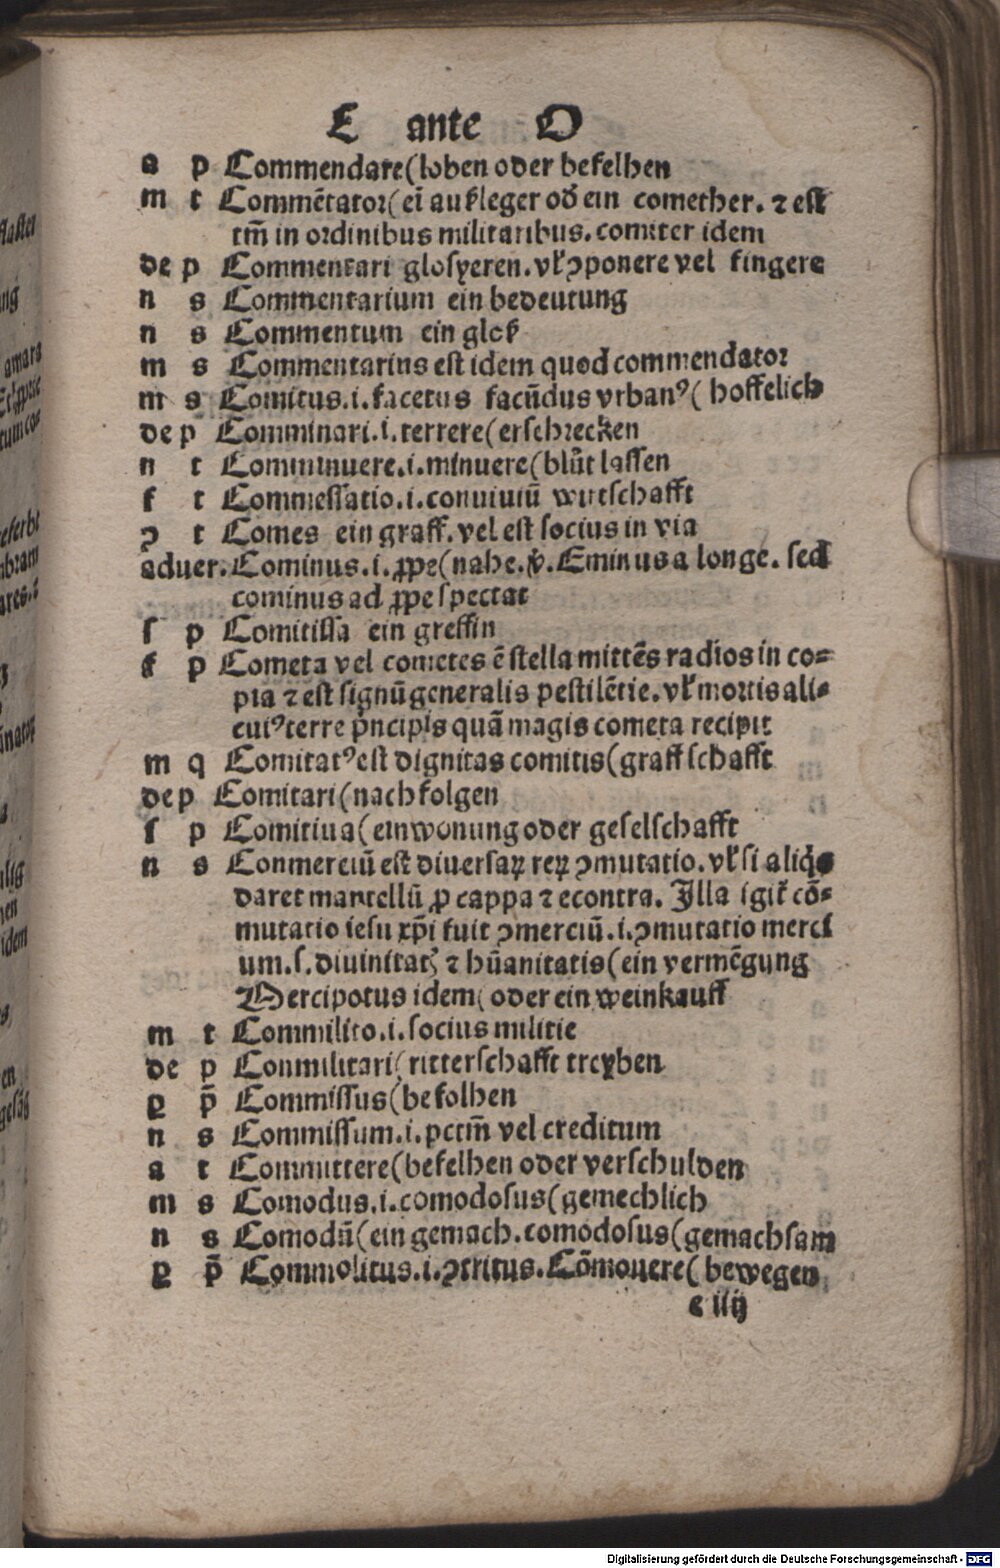 C ante O
a p Commendare(loben oder befelhen
m t Commētator(eī außleger od̄ ein comether. ⁊ est
tm̄ in ordinibus militaribus. comiter idem
de p Commentari glosyeren. vł ꝯponere vel fingere
n s Commentarium ein bedeutung
n s Commentum ein gloß
m s Commentarius est idem quod commendator
m s Comitus.i.facetus facūdus vrbanꝰ( hoffelich
de p Comminari.i.terrere(erschrecken
n t Comminuere.i.minuere(blūt lassen
f t Commessatio.i.conuiuiū wirtschafft
ꝯ t Comes ein graff. vel est socius in via
aduer. Cominus.i.ꝓpe(nahe.v̄. Eminus a longe. sed
cominus ad ꝓpe spectat
f p Comitissa ein greffin
f p Cometa vel cometes ē stella mittēs radios in co⸗
pia ⁊ est signū generalis pestilētie. vł mortis ali⸗
cuiꝰ terre p̄ncipis quā magis cometa recipit
m q Comitatꝰ est dignitas comitis(graffschafft
de p Comitari(nachfolgen
f p Comitiua(ein wonung oder geselschafft
n s Conmerciū est diuersaꝝ reꝝ ꝯmutatio. vł si aliqs
daret mantellū ꝓ cappa ⁊ econtra. Illa igit̄ cō⸗
mutatio iesu xp̄i fuit ꝯmerciū.i.ꝯmutatio merci
um.s.diuinitatꝭ ⁊ hūanitatis(ein vermēgung
Mercipotus idem( oder ein weinkauff
m t Commilito.i.socius militie
de p Conmilitari(ritterschafft treyben
ꝑ p̄ Commissus(befolhen
n s Commissum.i.pctm̄ vel creditum
a t Committere(befelhen oder verschulden
m s Comodus.i.comodosus(gemechlich
n s Comodū(ein gemach. comodosus(gemachsam
ꝑ p̄ Commolitus.i.ꝯtritus. Cōmouere(bewegen
e iiij
Digitalisierung gefördert durch die Deutsche Forschungsgemeinschaft - DFG